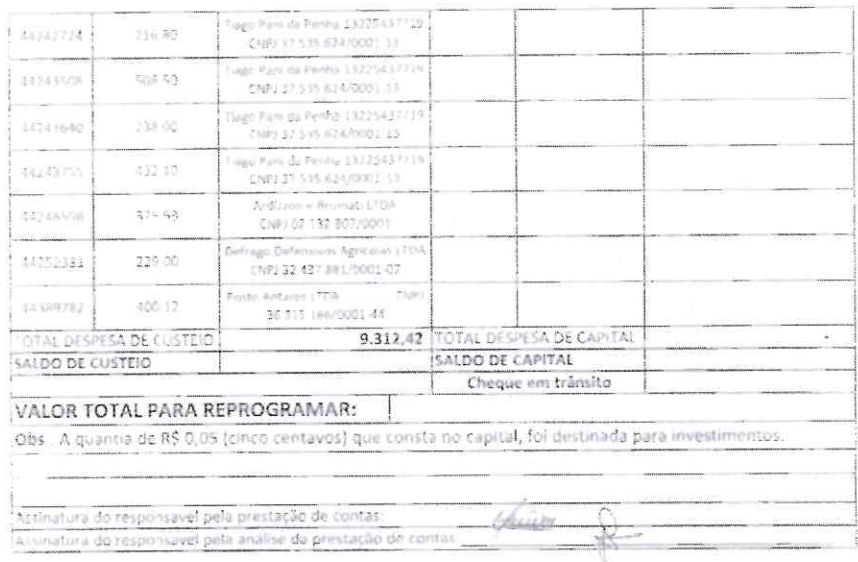 44242724 716.80 Tiago Pani da Penha 13225437719
CNPJ 37.535.624/0001-13
44243508 508.50 Tiago Pani da Penha 13225437719
CNPJ 37.535.624/0001-13
44243640 238.00 Tiago Pani da Penha 13225437719
CNPJ 37.535.624/0001-13
44243755 432.10 Tiago Pani da Penha 13225437719
CNPJ 37.535.624/0001-13
LTDA
CNPJ 07 132 807/0001
44252331 229.00 Defrago Defensivos Agricolas LTDA
CNPJ 32 437 881/0001-07
44389782 400.12 Antares LTDA CNPJ
36 315 166/0001-44
TOTAL DESPESA DE CUSTEIO 9.312,42 TOTAL DESPESA DE CAPITAL -
SALDO DE CUSTEIO SALDO DE CAPITAL
Cheque em trânsito
VALOR TOTAL PARA REPROGRAMAR:
Obs . A quantia de R$ 0,05 (cinco centavos) que consta no capital, foi destinada para investimentos.
Assinatura do responsavel pela prestação de contas:
Assinatura do responsavel pela análise da prestação de contas